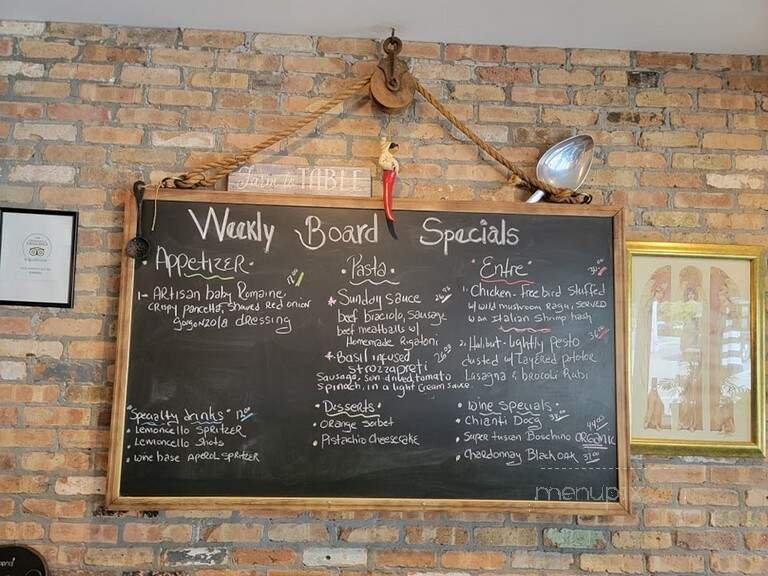 Farm to TABLE
Weekly Board Specials
Appetizer
1- Artisan baby Romaine,
crispy pancetta, shaved red onion
gorgonzola dressing
Pasta
Sunday Sauce
Beef Braciola, Sausage
beef meatballs w/
Homemade Rigatoni
Basil infused
Strozzapreti
Sausage, Sun dried tomato
Spinach, in a light cream sauce
Entre
1. Chicken- free bird stuffed
w/ wild mushroom Ragu, served
w an Italian Shrimp hash
2. Halibut- lightly pesto
dusted w/ layered potatoe
Lasagna & brocoli Rabi
Specialty drinks 12.00
• Lemoncello SPRITZER
• Lemoncello Shots
• Wine base APEROL SPRITZER
Desserts
• ORANGE Sorbet
• Pistachio Cheesecake
Wine Specials
• Chianti Docg
• Super tuscan Boschino ORGANIC 44.00
• Chardonnay Black oak 37.00
menupix